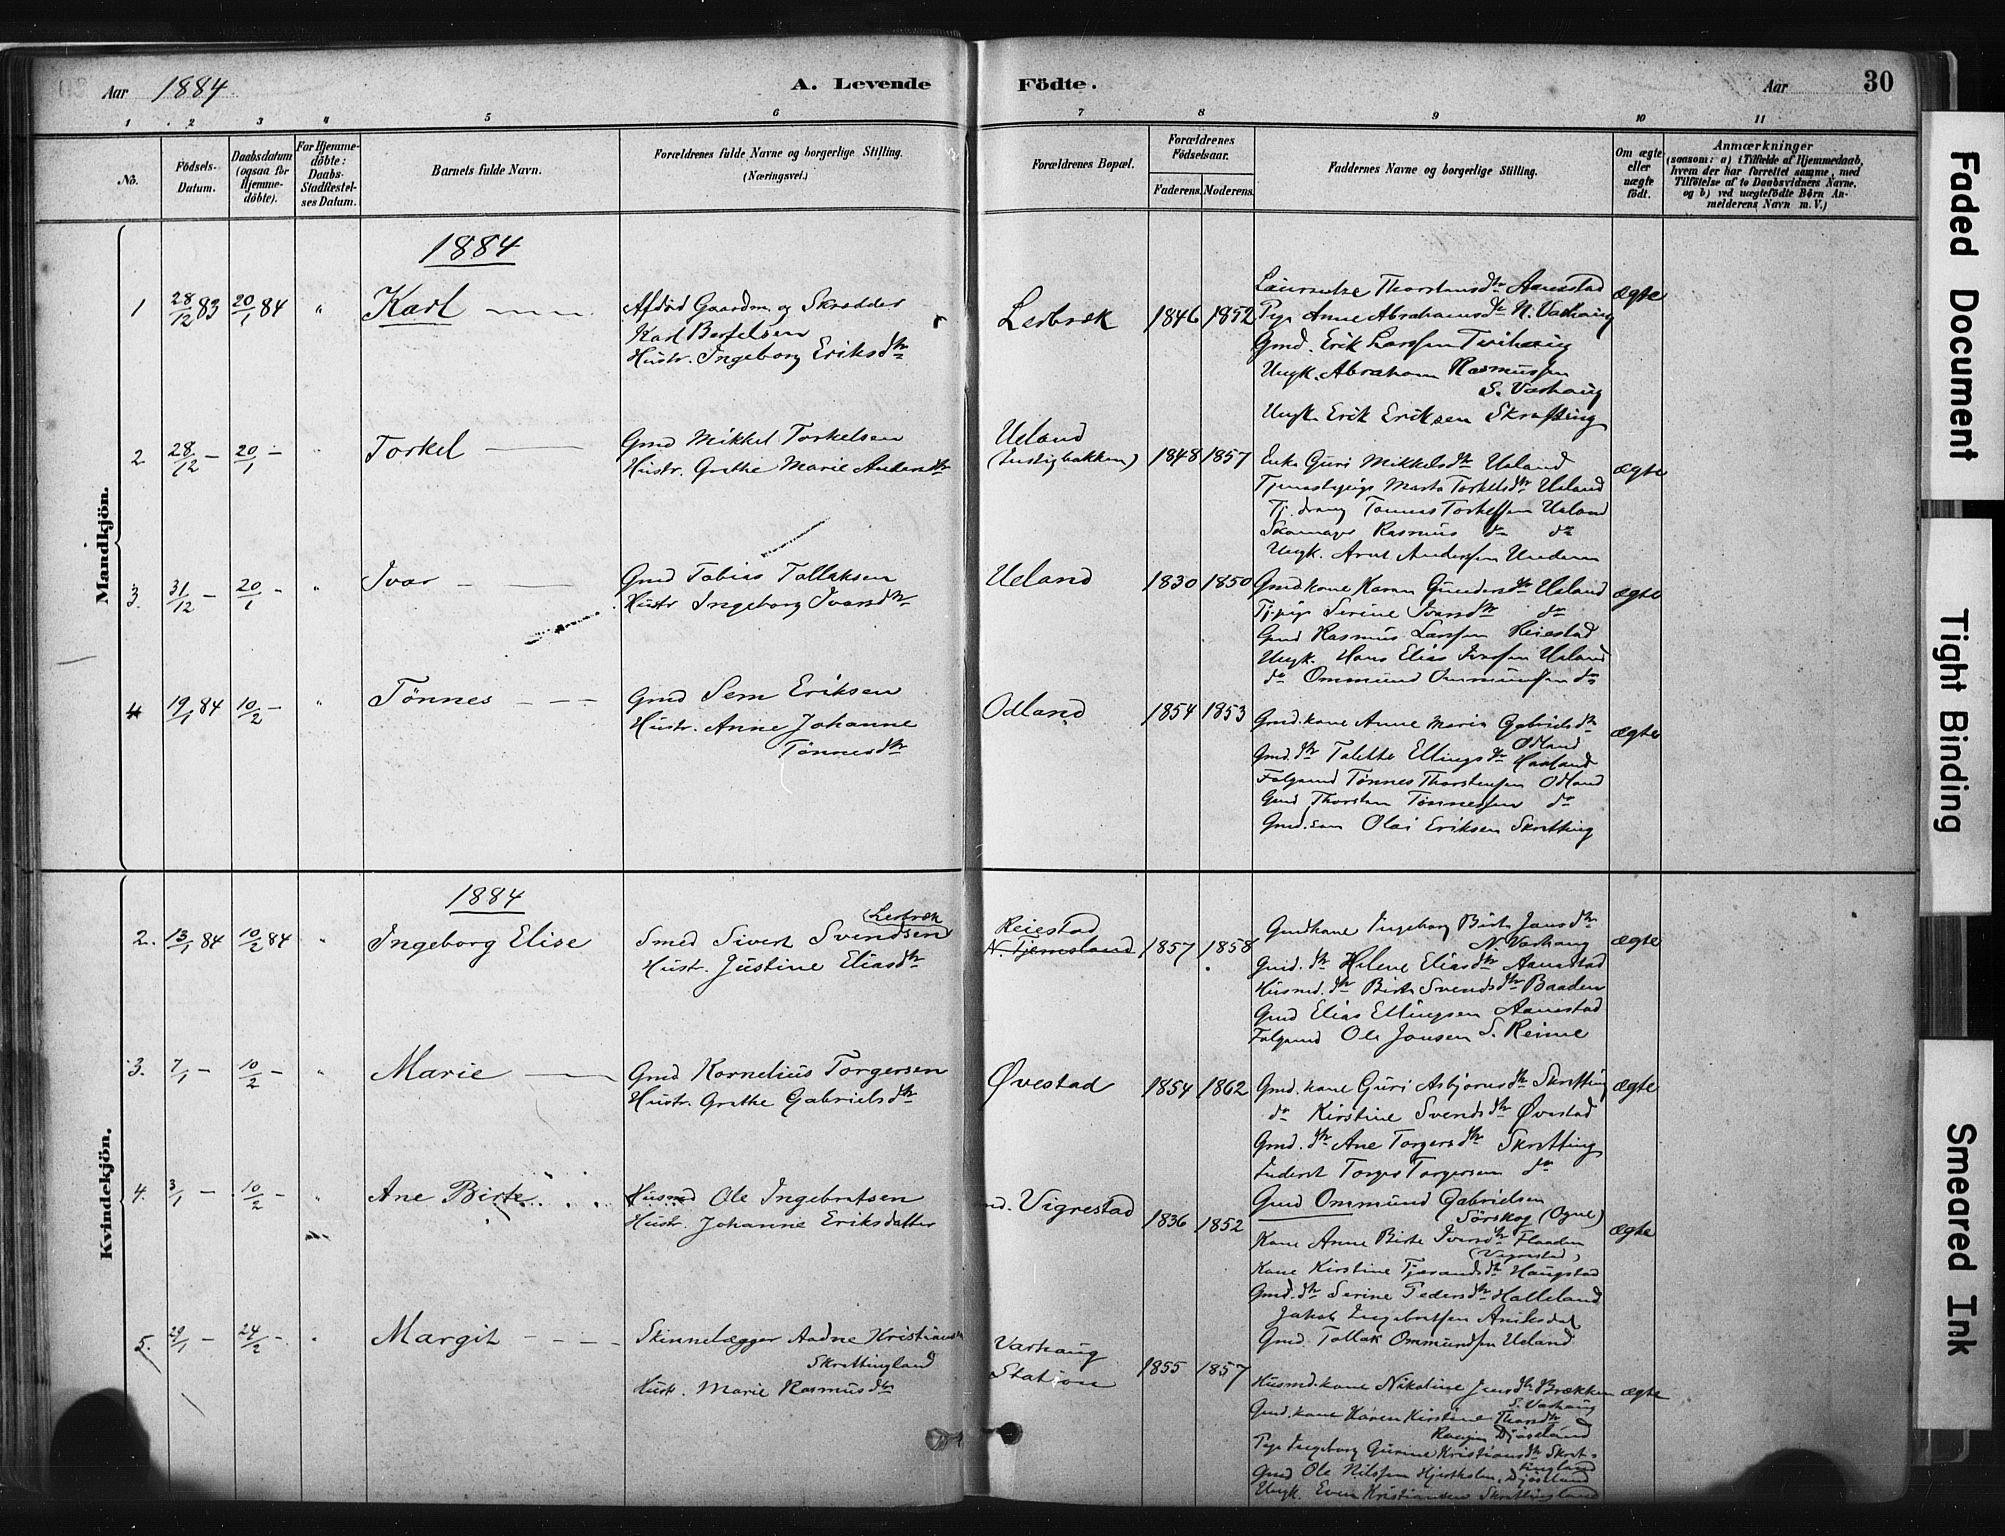 Aar 1884
A. Levende
Födte.
Aar
30
1 2 3 4 5 6 7 8 9 10 11
No.
Födsels-
Datum.
Daabsdatum
(ogsaa for
Hjemme-
döbte).
For Hjemme-
döbte:
Daabs-
Stadfæstel-
ses Datum.
Barnets fulde Navn.
Forældrenes fulde Navne og borgerlige Stilling.
(Næringsvei.)
Forældrenes Bopæl.
Forældrenes
Födselsaar.
Faderens. Moderens.
Faddernes Navne og borgerlige Stilling.
Om ægte
eller
uægte
födt.
Anmærkninger
(saasom: a) i Tilfælde af Hjemmedaab,
hvem der har forrettet samme, med
Tilföielse af to Daabsvidners Navne,
og b) ved uægtefödte Börn An-
melderens Navn m. V.)
Mandkjön.
1884
1 28/12 83 20/1 84 " Karl
Afdöd Gaardm. og Skrædder
Karl Bertelsen
Hustr. Ingeborg Eriksdtr
Lerbræk 1846 1852
Thorstensdtr Aanestad
Pige Anne Abrahamsdtr N. Varhaug
Gmd. Erik Larssen Tvihaug
Ungk. Abraham Rasmussen
S. Varhaug
Ungk. Erik Eriksen Skretting
ægte
2 28/12 - 20/1 - " Torkel
Gmd Mikkel Torkelsen
Hustr. Grethe Marie Andersdtr
Ueland
1848 1857
Enke Guri Mikkelsdtr Ueland
Marta Torkelsdtr Ueland
Tj. dreng Tönnes Torkelsen Ueland
Skomager Rasmus do do
Ungk. Arnt Anderssen
ægte
3. 31/12 - 20/1 - " Ivar
Gmd Tobias Tollaksen
Hustr Ingeborg Ivarsdtr
Ueland 1830 1850
Gmdkone Karen Gundersdtr Ueland
Tj.pige Serine Ivarsdtr do
Gmd Rasmus Larssen Reiestad
Ungk. Hans Elias Ivarssen Ueland
do Ommund Ommundsen do
ægte
4 19/1 84 10/2 - " Tönnes
Gmd Sem Eriksen
Hustr. Anne Johanne
Tönnesdtr
Odland 1854 1853
Gmd. kone Anne Maria Gabrielsdtr
Odland
Gmd. dtr Talette Ellingsdtr Haaland
Folgemd Tönnes Thorstensen Odland
Gmd Thorsten Tönnessen do
Gmd. sön Olai Eriksen Skretting
ægte
Kvindekjön.
1884
2. 13/1 84 10/2 84 " Ingeborg Elise
(Lerbræk
Smed Sivert Svendsen
Hustr. Justine Eliasdtr
Reiestad
N. Tjemsland 1857 1858
Gmdkone Ingeborg Birte Jansdtr
N. Varhaug
Gmd. dtr Helene Eliasdtr Aanestad
Husmd. dtr Birte Svendsdtr Baaden
Gmd Elias Ellingsen Aanestad
Folgemd Ole Jansen S. Reime
ægte
3. 7/1 - 10/2 - " Marie
Gmd Kornelius Torgersen
Hustr. Grethe Gabrielsdtr
Øvestad 1854 1862
Gmd. kone Guri Asbjörnsdtr Skretting
do Kirstine Svendsdtr Øvestad
Gmd. dtr Ane Torgersdtr Skretting
Inderst Torger Torgersen do
Gmd Ommund Gabrielsen
Sörskog (Ogne)
ægte
4. 3/1 - 10/2 - " Ane Birte
Husmd Ole Ingebretsen
Hustr. Johanne Eriksdatter
nd. Vigrestad 1836 1852
Kone Anne Birte Iversdtr Flaaden
(Vigrestad)
Kone Kirstine Tjerandsdtr Haugstad
Gmd. dtr Serine Pedersdtr Halleland
Jakob Ingebretsen Aniksdal
Gmd. Tollak Ommundsen Ueland
ægte
5. 29/1 - 24/2 - " Margit
Skinnelægger Aadne Kristiansen
Skrettingland
Hustr. Marie Rasmusdtr
Varhaug
Station 1855 1857
Husmd. kone Nikoline Jensdtr Brækken
S. Varhaug
Gmd. kone Karen Kirstine Thorsdtr
Djösland
Pige Ingeborg Gurine Kristiansdtr Skret-
tingland
Gmd Ole Nilssen Hjertholm, Djösland
Ungk. Even Kristiansen Skrettingland
ægte
Faded Document
Tight Binding
Smeared Ink